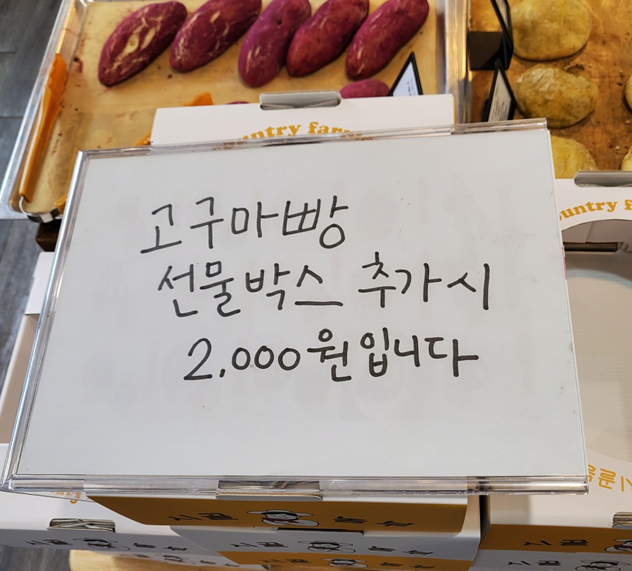 고구마빵
선물박스 추가시
2,000원입니다